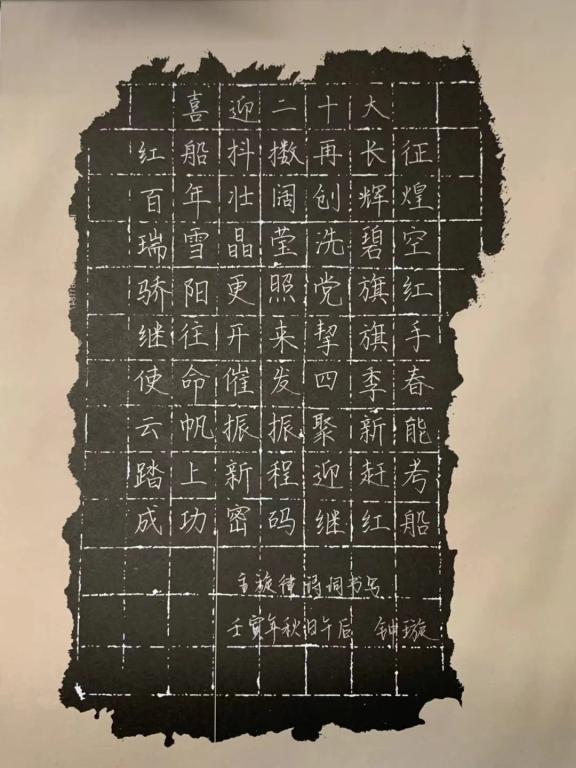 喜迎二十大
红船抖擞再长征
百年壮阔创辉煌
瑞雪晶莹洗碧空
骄阳更照党旗红
继往开来挈旗手
使命催发四季春
云帆振振聚新能
踏上新程迎赶考
成功密码继红船
主旋律诗词书写
壬寅年秋日午后 钟璇